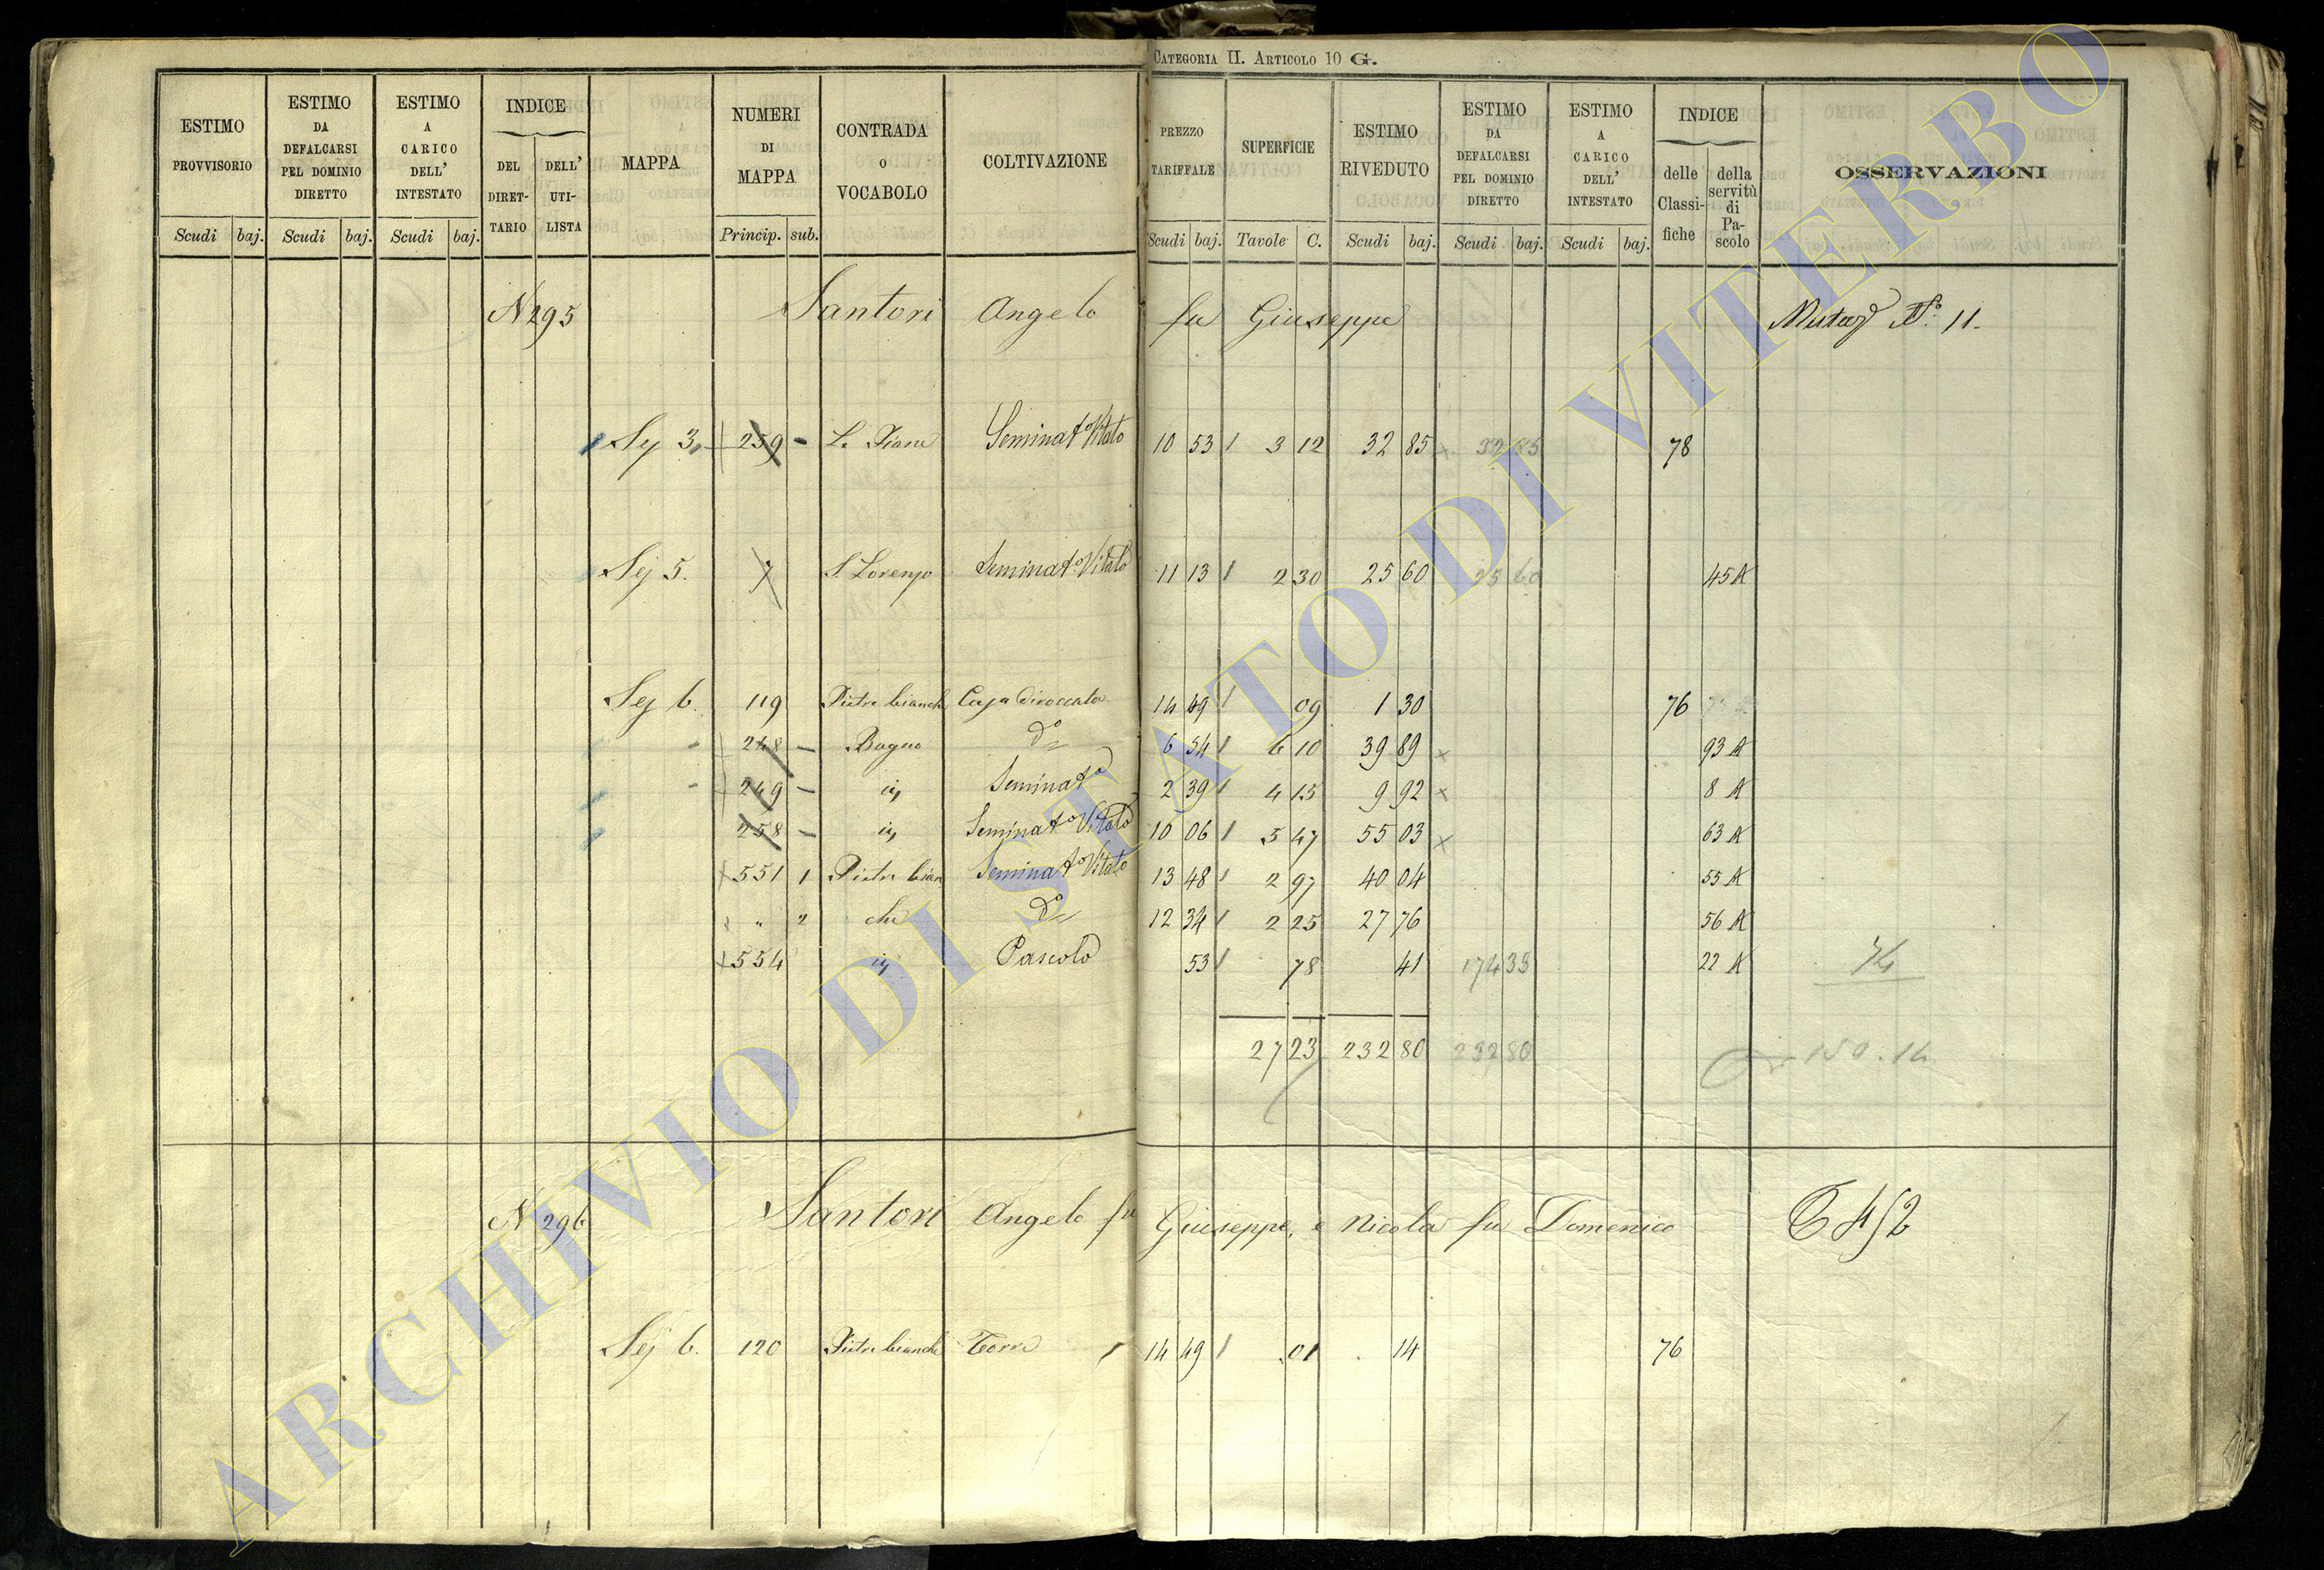 CATEGORIA II. ARTICOLO 10 G.
ESTIMO PROVVISORIO
Scudi baj.
ESTIMO DA DEFALCARSI PEL DOMINIO DIRETTO
Scudi baj.
ESTIMO A CARICO DELL' INTESTATO
Scudi baj.
INDICE
DEL DIRET-TARIO
DELL' UTI-LISTA
MAPPA
NUMERI DI MAPPA
Princip. sub.
CONTRADA O VOCABOLO
COLTIVAZIONE
PREZZO TARIFFALE
Scudi baj.
SUPERFICIE
Tavole C.
ESTIMO RIVEDUTO
Scudi baj.
ESTIMO DA DEFALCARSI PEL DOMINIO DIRETTO
Scudi baj.
ESTIMO A CARICO DELL' INTESTATO
Scudi baj.
INDICE
delle Classi-fiche
della servitù di Pa-scolo
OSSERVAZIONI
N 295 Santori Angelo fu Giuseppe 11.
3 259 - Seminato Vitato 10 53 3 12 32 85 32 85 78
5. 7 S Lorenzo Seminato Vitato 11 13 2 30 25 60 25 60 45 A
6. 119 Pietre bianche Casa diroccata 14 49 09 1 30 76
" 248 - Bagno do 6 54 6 10 39 89 93 A
" 249 - Seminato 2 39 4 15 9 92 8 A
258 - Seminato Vitato 10 06 5 47 55 03 63 A
551 1 Pietre bian Seminato Vitato 13 48 2 97 40 04 55 A
" 2 che do 12 34 2 25 27 76 56 A
554 Pascolo 53 78 41 174 35 22 A 74
27 23 232 80 232 80 150.14
N 296 Santori Angelo fu Giuseppe, e Nicola fu Domenico
6. 120 Pietre bianche Torre 14 49 01 14 76
ARCHIVIO DI STATO DI VITERBO